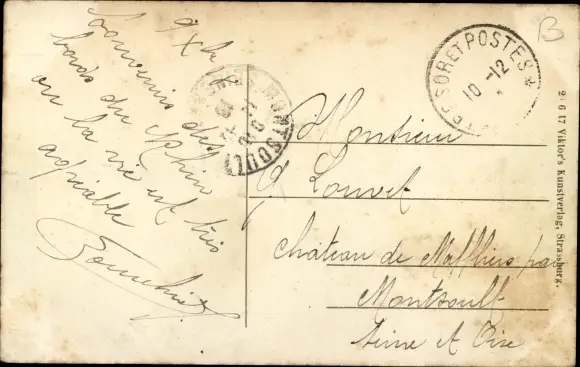 9 Xbre
Souvenirs des
bords du Rhin
où la vie est très
agréable
MONTSOULT
TRESOR ET POSTES *
10 - 12
B
Monsieur
Louvet
château de Maffliers par
Montsoult
Seine et Oise
2 6 17 Viktor's Kunstverlag, Strassburg.